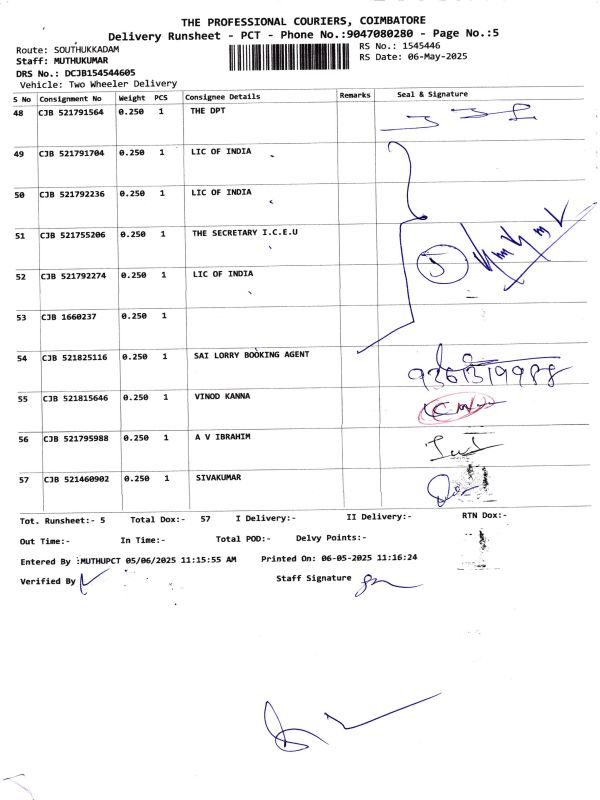 THE PROFESSIONAL COURIERS, COIMBATORE
Delivery Runsheet - PCT - Phone No.:9047080280 - Page No.:5
Route: SOUTHUKKADAM RS No.: 1545446
Staff: MUTHUKUMAR RS Date: 06-May-2025
DRS No.: DCJB154544605
Vehicle: Two Wheeler Delivery
S No Consignment No Weight PCS Consignee Details Remarks Seal & Signature
48 CJB 521791564 0.250 1 THE DPT
49 CJB 521791704 0.250 1 LIC OF INDIA
50 CJB 521792236 0.250 1 LIC OF INDIA
51 CJB 521755206 0.250 1 THE SECRETARY I.C.E.U
5
52 CJB 521792274 0.250 1 LIC OF INDIA
53 CJB 1660237 0.250 1
54 CJB 521825116 0.250 1 SAI LORRY BOOKING AGENT
9361319988
55 CJB 521815646 0.250 1 VINOD KANNA
56 CJB 521795988 0.250 1 A V IBRAHIM
57 CJB 521460902 0.250 1 SIVAKUMAR
Tot. Runsheet:- 5 Total Dox:- 57 I Delivery:- II Delivery:- RTN Dox:-
Out Time:- In Time:- Total POD:- Delvy Points:-
Entered By :MUTHUPCT 05/06/2025 11:15:55 AM Printed On: 06-05-2025 11:16:24
Verified By Staff Signature